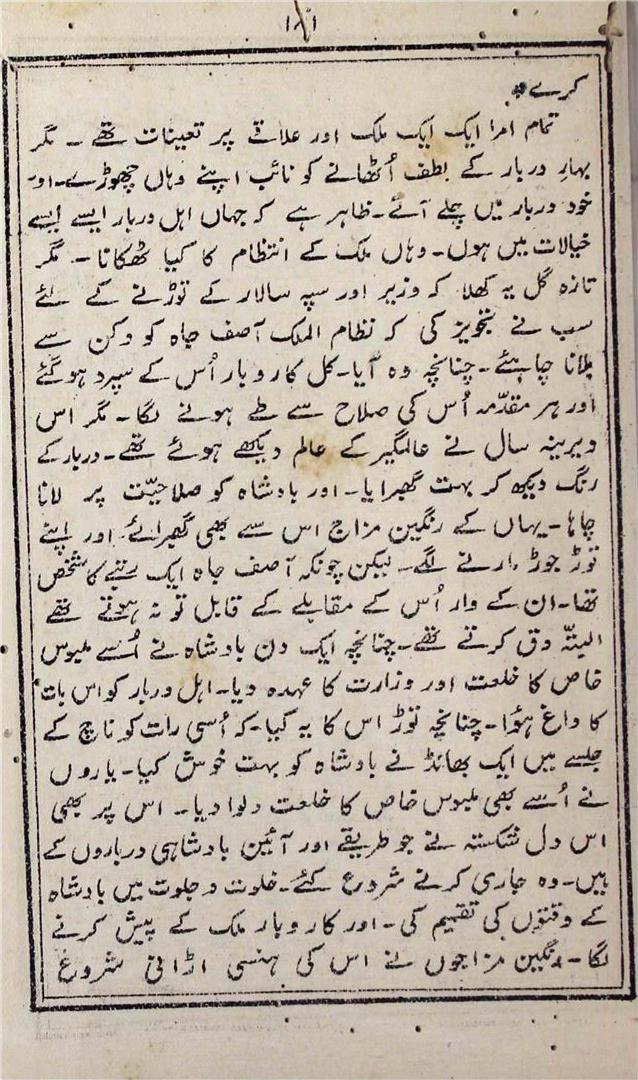 ۱۸۱
کرے۔
تمام امرا ایک ایک ملک اور علاقے پر تعینات تھے۔ مگر
بہارِ دربار کے لطف اُٹھانے کو نائب اپنے وہاں چھوڑے۔ اور
خود دربار میں چلے آئے۔ ظاہر ہے کہ جہاں اہل دربار ایسے ایسے
خیالات میں ہوں۔ وہاں ملک کے انتظام کا کیا ٹھکانا۔ مگر
تازہ گُل یہ کھلا کہ وزیر اور سپہ سالار کے توڑنے کے لئے
سب نے تجویز کی کہ نظام الملک آصف جاہ کو دکن سے
بلانا چاہئے۔ چنانچہ وہ آیا۔ کل کاروبار اُس کے سپرد ہوگئے
اور ہر مقدّمہ اُس کی صلاح سے طے ہونے لگا۔ مگر اس
دیرینہ سال نے عالمگیر کے عالم دیکھے ہوئے تھے۔ دربار کے
رنگ دیکھ کر بہت گھبرایا۔ اور بادشاہ کو صلاحیّت پر لانا
چاہا۔ یہاں کے رنگین مزاج اس سے بھی گھبرائے اور اپنے
توڑ جوڑ مارنے لگے۔ لیکن چونکہ آصف جاہ ایک رتبے کا شخص
تھا۔ ان کے وار اُس کے مقابلے کے قابل تو نہ ہوتے تھے
البتّہ دق کرتے تھے۔ چنانچہ ایک دن بادشاہ نے اُسے ملبوس
خاص کا خلعت اور وزارت کا عہدہ دیا۔ اہل دربار کو اس بات
کا داغ ہؤا۔ چنانچہ توڑ اس کا یہ کیا۔ کہ اُسی رات کو ناچ کے
جلسے میں ایک بھانڈ نے بادشاہ کو بہت خوش کیا۔ یاروں
نے اُسے بھی ملبوس خاص کا خلعت دلوا دیا۔ اس پر بھی
اس دل شکستہ نے جو طریقے اور آئین بادشاہی درباروں کے
ہیں۔ وہ جاری کرنے شروع کئے۔ خلوت و جلوت میں بادشاہ
کے وقتوں کی تقسیم کی۔ اور کاروبار ملک کے پیش کرنے
لگا۔ رنگین مزاجوں نے اس کی ہنسی اڑانی شروع